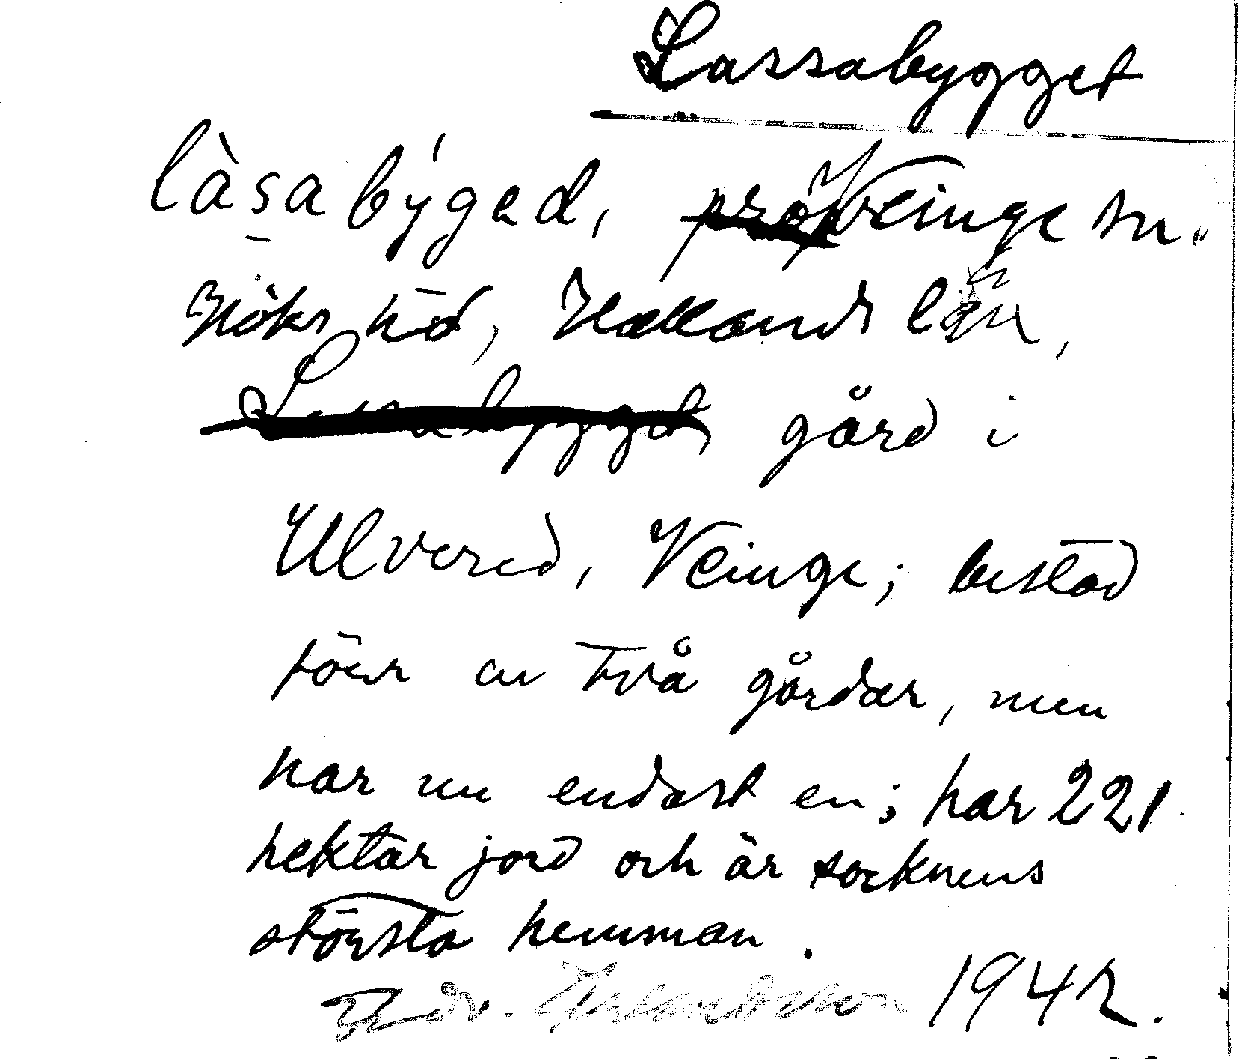 Lassabygget
làsabýged, Veinge sn.
Höks hd, Hallands län,
gård i
Ulvered, Veinge; bestod
förr av två gårdar, men
har nu endast en; har 221
hektar jord och är socknens
största hemman.
1942.